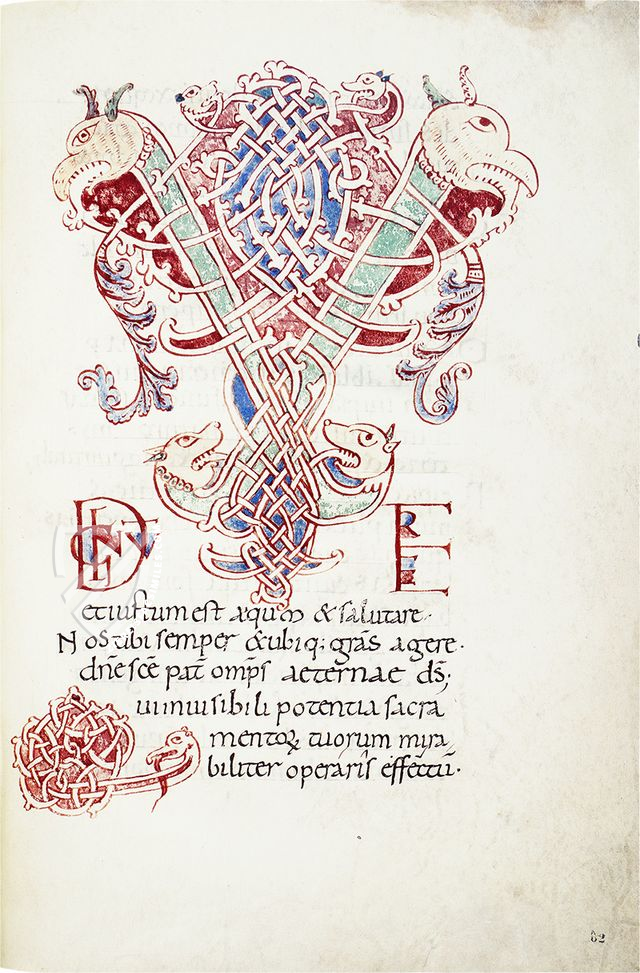 V DIGNV ERE
et iustum est aequm & salutare.
Nos tibi semper & ubiq; grās agere.
dn̄e sc̄e pat̄ omp̄s aeternae ds̄;
Qui inuisibili potentia sacra
mentoꝝ tuorum mira
biliter operaris effectū.
62